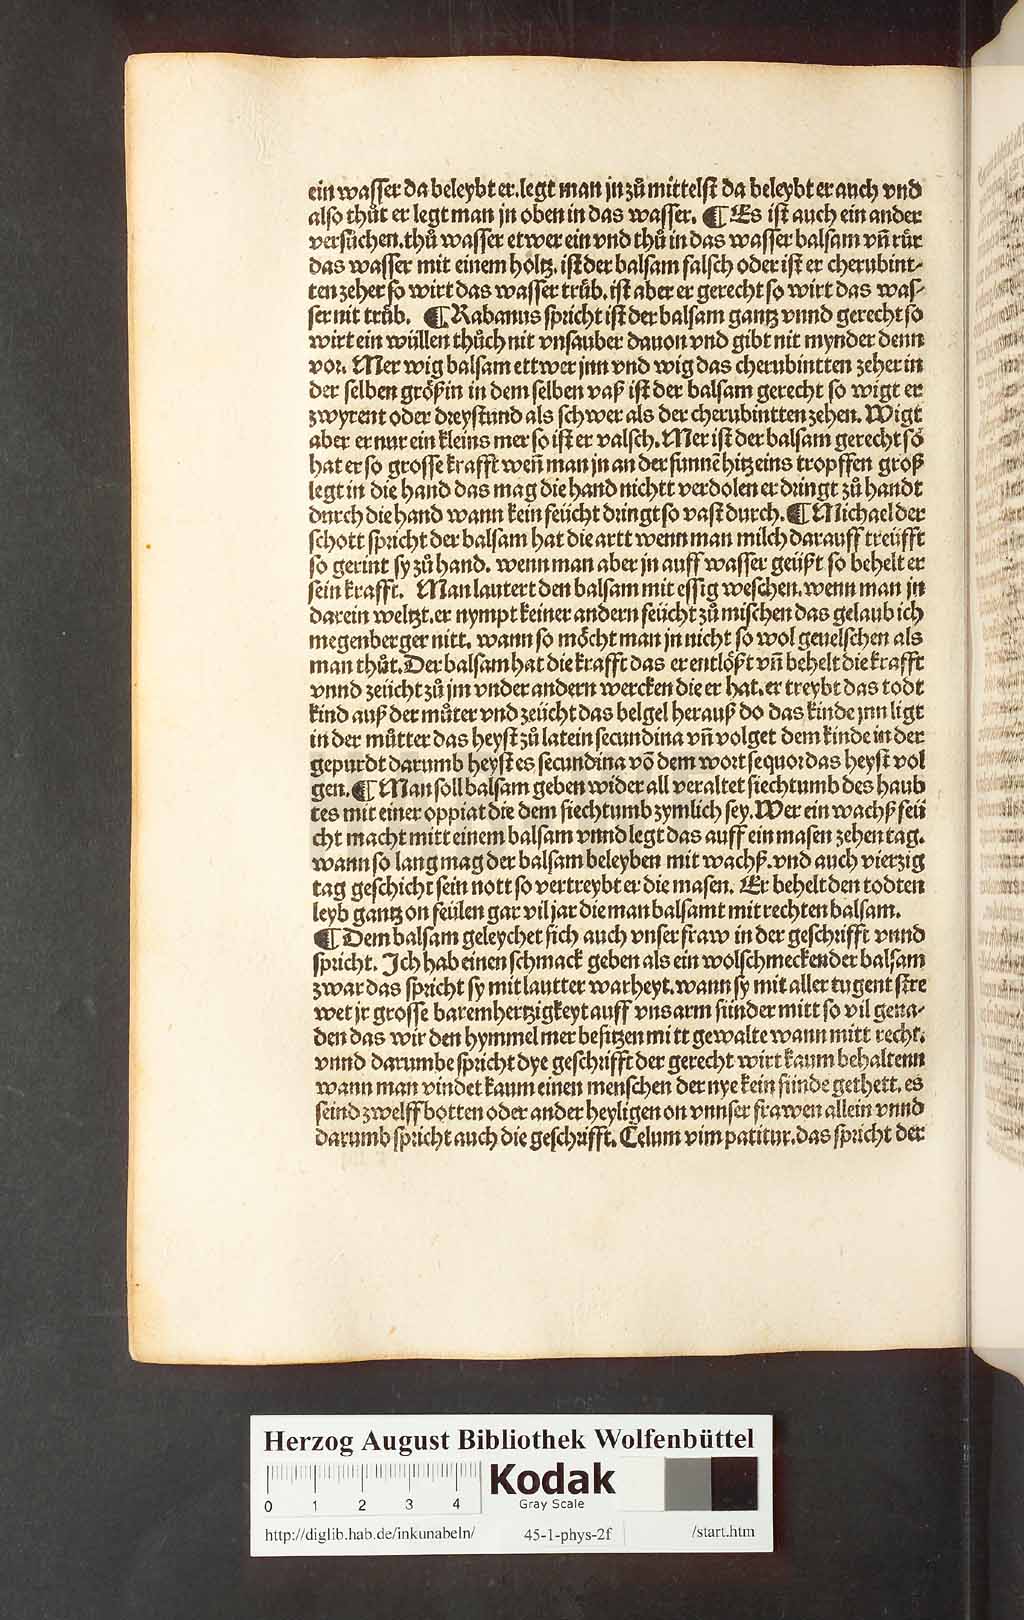 ein waſſer da beleybt er. legt man jn zů mittelſt da beleybt er auch vnd
alſo thůt er legt man jn oben in das waſſer. ¶ Es iſt auch ein ander
verſůchen. thů waſſer etwer ein vnd thů in das waſſer balſam vñ růr
das waſſer mit einem holtz. iſt der balſam falſch oder iſt er cherubint⸗
ten zeher ſo wirt das waſſer trůb. iſt aber er gerecht ſo wirt das waſ⸗
ſer nit trůb. ¶ Rabanus ſpricht iſt der balſam gantz vnnd gerecht ſo
wirt ein wüllen thůch nit vnſauber dauon vnd gibt nit mynder denn
vor. Mer wig balſam ettwer jnn vnd wig das cherubintten zeher in
der ſelben größin in dem ſelben vaß iſt der balſam gerecht ſo wigt er
zwyrent oder dreyſtund als ſchwer als der cherubintten zehen. Wigt
aber er nur ein kleins mer ſo iſt er valſch. Mer iſt der balſam gerecht ſo
hat er ſo groſſe krafft weñ man jn an der ſunnē hitz eins tropffen groß
legt in die hand das mag die hand nichtt verdolen er dringt zů handt
durch die hand wann kein feücht dringt ſo vaſt durch. ¶ Michael der
ſchott ſpricht der balſam hat die artt wenn man milch darauff treüfft
ſo gerint ſy zů hand. wenn man aber jn auff waſſer geüßt ſo behelt er
ſein krafft. Man lautert den balſam mit eſſig weſchen. wenn man jn
darein weltzt. er nympt keiner andern feücht zů miſchen das gelaub ich
megenberger nitt. wann ſo möcht man jn nicht ſo wol geuelſchen als
man thůt. Der balſam hat die krafft das er entlößt vñ behelt die krafft
vnnd zeücht zů jm vnder andern wercken die er hat. er treybt das todt
kind auß der můter vnd zeücht das belgel herauß do das kinde jnn ligt
in der můtter das heyſt zů latein ſecundina vñ volget dem kinde in der
gepurdt darumb heyſt es ſecundina vō dem wort ſequor das heyſt vol
gen. ¶ Man ſoll balſam geben wider all veraltet ſiechtumb des haub
tes mit einer oppiat die dem ſiechtumb zymlich ſey. Wer ein wachß feü
cht macht mitt einem balſam vnnd legt das auff ein maſen zehen tag.
wann ſo lang mag der balſam beleyben mit wachß. vnd auch vierzig
tag geſchicht ſein nott ſo vertreybt er die maſen. Er behelt den todten
leyb gantz on feülen gar vil jar die man balſamt mit rechten balſam.
¶ Dem balſam geleychet ſich auch vnſer fraw in der geſchrifft vnnd
ſpricht. Ich hab einen ſchmack geben als ein wolſchmeckender balſam
zwar das ſpricht ſy mit lautter warheyt. wann ſy mit aller tugent ſtre
wet jr groſſe baremhertzigkeyt auff vns arm ſünder mitt ſo vil gena⸗
den das wir den hymmel mer beſitzen mitt gewalte wann mitt recht.
vnnd darumbe ſpricht dye geſchrifft der gerecht wirt kaum behaltenn
wann man vindet kaum einen menſchen der nye kein ſünde gethett. es
ſeind zwelffbotten oder ander heyligen on vnnſer frawen allein vnnd
darumb ſpricht auch die geſchrifft. Celum vim patitur. das ſpricht der
Herzog August Bibliothek Wolfenbüttel
0 1 2 3 4 Kodak
Gray Scale
http://diglib.hab.de/inkunabeln/ 45-1-phys-2f /start.htm